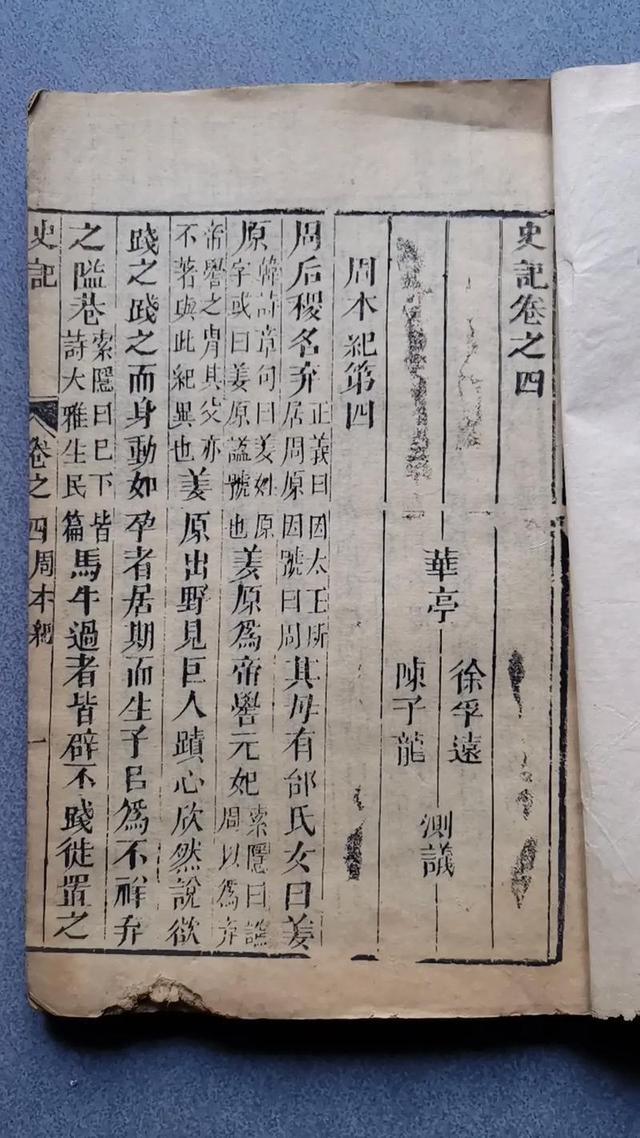 史記卷之四
華亭
徐孚遠
陳子龍
測議
周本紀第四
周后稷名弃正義曰因太王所居周原因號曰周其母有邰氏女曰姜
原韓詩章句曰姜姓原字或曰姜原謚號也姜原爲帝嚳元妃索隱曰譙周以爲弃
帝嚳之胄其父亦不著與此紀異也姜原出野見巨人蹟心欣然說欲
踐之踐之而身動如孕者居期而生子㠯爲不祥弃
之隘巷索隱曰巳下皆詩大雅生民篇馬牛過者皆辟不踐徙置之
史記 卷之四周本紀 一